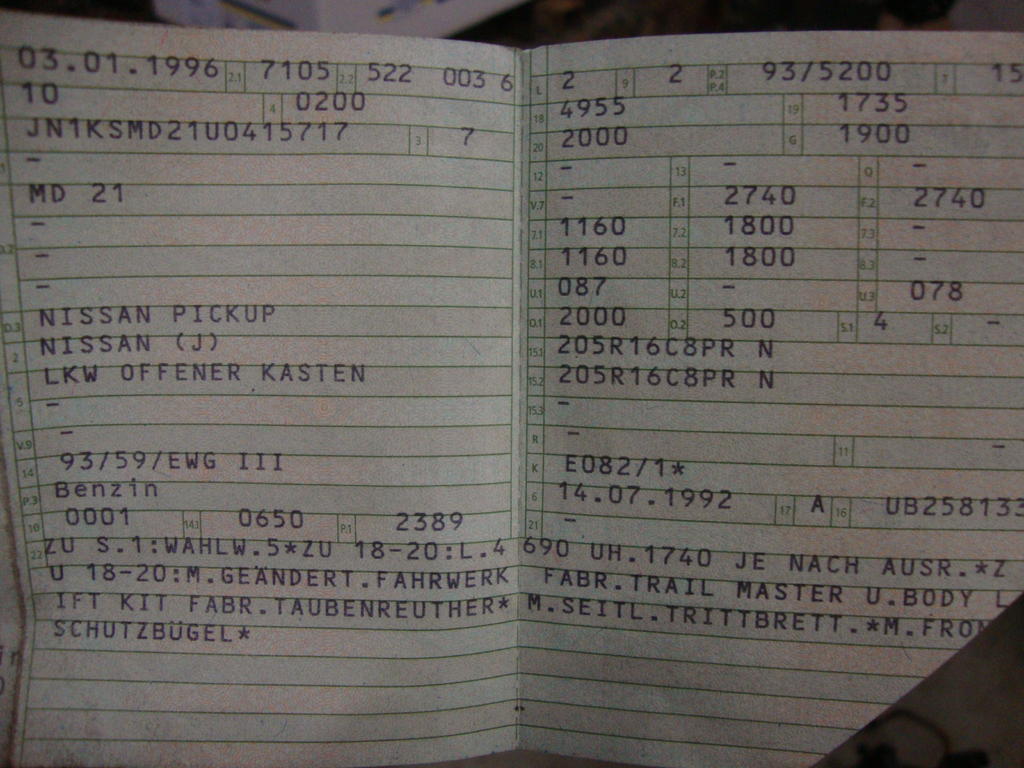 03.01.1996 2.1 7105 2.2 522 003 6
10 4 0200
JN1KSMD21U0415717 3 7
-
MD 21
-
D.2 -
-
D.3 NISSAN PICKUP
2 NISSAN (J)
LKW OFFENER KASTEN
5 -
-
V.9 93/59/EWG III
14 Benzin
P.3
10 0001 14.1 0650 P.1 2389
L 2 9 2 P.2 P.4 93/5200 T 15
18 4955 19 1735
20 2000 G 1900
12 - 13 - Q -
V.7 - F.1 2740 F.2 2740
7.1 1160 7.2 1800 7.3 -
8.1 1160 8.2 1800 8.3 -
U.1 087 U.2 - U.3 078
O.1 2000 O.2 500 S.1 4 S.2 -
15.1 205R16C8PR N
15.2 205R16C8PR N
15.3 -
R - 11 -
K E082/1*
6 14.07.1992 17 A 16 UB258133
21 -
22 ZU S.1:WAHLW.5*ZU 18-20:L.4690 UH.1740 JE NACH AUSR.*Z
U 18-20:M.GEÄNDERT.FAHRWERK FABR.TRAIL MASTER U.BODY L
IFT KIT FABR.TAUBENREUTHER* M.SEITL.TRITTBRETT.*M.FRON
SCHUTZBÜGEL*